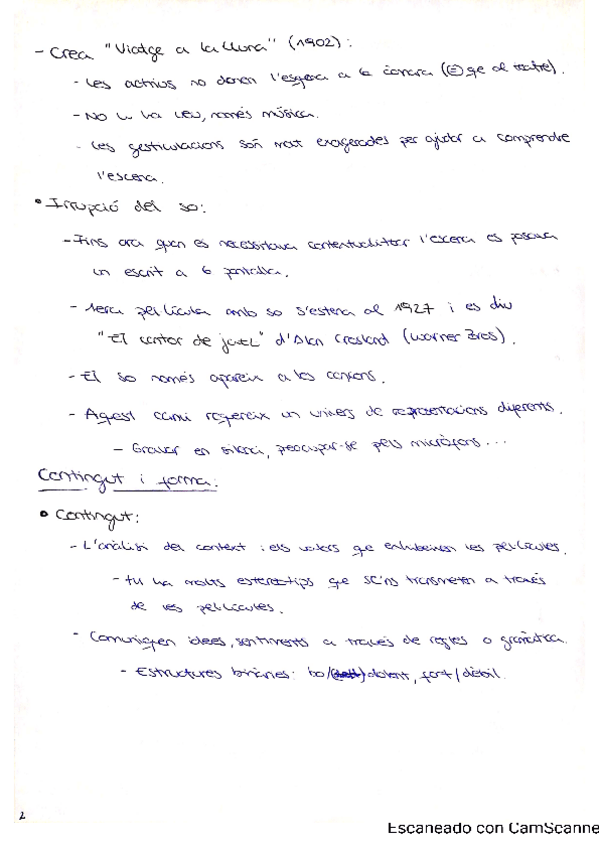 - Crea "Viatge a la lluna" (1902):
- Les actrius no donen l'esquena a la càmara (= que al teatre).
- NO hi ha veu, només música.
- Les gesticulacions són molt exagerades per ajudar a comprendre
l'escena.
• Irrupció del so:
- Fins ara quan es necessitava contextualitzar l'escena es posava
un escrit a la pantalla.
- 1era pel·lícula amb so s'estrena al 1927 i es diu
"El cantor de jazz" d'Alan Crosland (Warner Bros).
- El so només apareix a les cançons.
- Aquest canvi requereix un univers de representacions diferents.
- Gravar en silenci, preocupar-se pels micròfons...
Contingut i forma:
• Contingut:
- L'anàlisi del context i els valors que exhibeixen les pel·lícules.
- Hi ha molts estereotips que se'ns transmeten a través
de les pel·lícules.
- Comuniquen idees, sentiments a través de regles o gramàtica.
- Estructures binàries: bo/dolent, fort/dèbil.
2
Escaneado con CamScanne